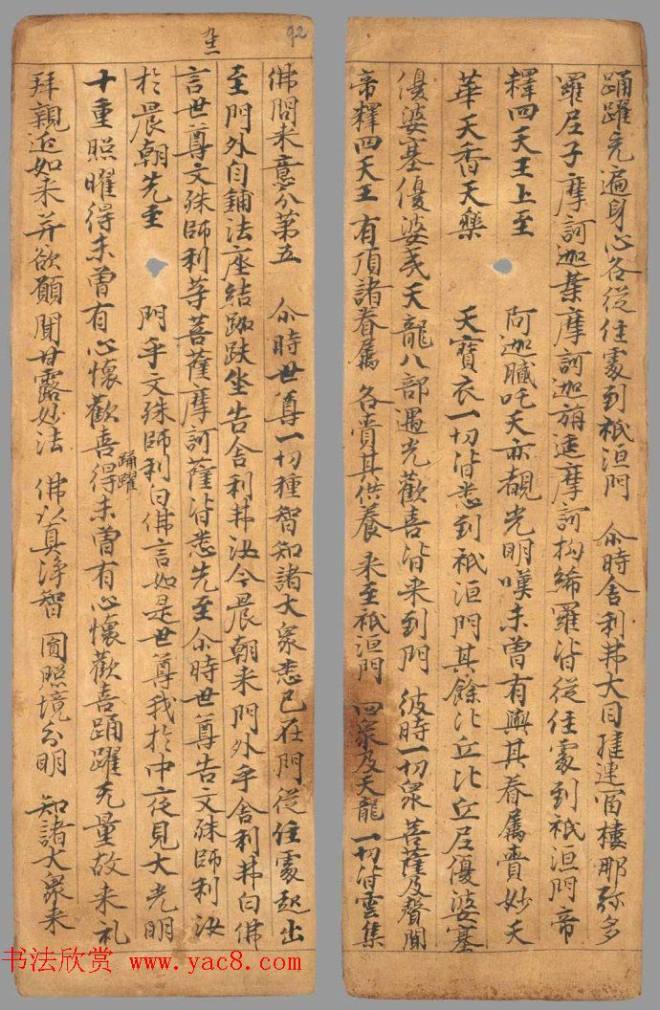 踊躍充遍身心各從住處到祇洹門 尒時舍利弗大目揵連富樓那弥多
羅尼子摩訶迦葉摩訶迦旃延摩訶拘絺羅皆從住處到祇洹門帝
釋四天王上至 阿迦膩吒天亦覩光明嘆未曾有與其眷屬賷妙天
華天香天樂 天寶衣一切皆悉到祇洹門其餘比丘比丘尼優婆塞
優婆塞優婆夷天龍八部遇光歡喜皆来到門 彼時一切衆菩薩及聲聞
帝釋四天王 有頂諸眷屬 各賷其供養 来至祇洹門 四衆及天龍 一切皆雲集
92
佛問来意分第五 尒時世尊一切種智知諸大衆悉已在門從住處起出
至門外自鋪法座結跏趺坐告舍利弗汝今晨朝来門外乎舍利弗白佛
言世尊文殊師利等菩薩摩訶薩皆悉先至尒時世尊告文殊師利汝
於晨朝先至 門乎文殊師利白佛言如是世尊我於中夜見大光明
十重照曜得未曾有心懷歡喜得未曾有心懷歡喜踊躍无量故来礼
踊躍
拜親近如来并欲願聞甘露妙法 佛以真淨智 圓照境分明 知諸大衆来
书法欣赏 www.yac8.com